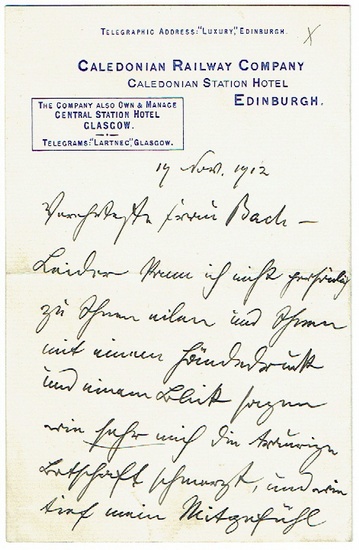 Telegraphic Address: "Luxury," Edinburgh.
X
Caledonian Railway Company
Caledonian Station Hotel
Edinburgh.
The Company also Own & Manage
Central Station Hotel
Glasgow.
Telegrams: "Lartnec", Glasgow.
19 Nov. 1912
Verehrteste Frau Bach –
Leider kann ich nicht persönlich
zu Ihnen eilen und Ihnen
mit einem Händedruck
und einem Blick sagen
wie sehr mich die traurige
Botschaft schmerzt, und wie
tief mein Mitgefühl